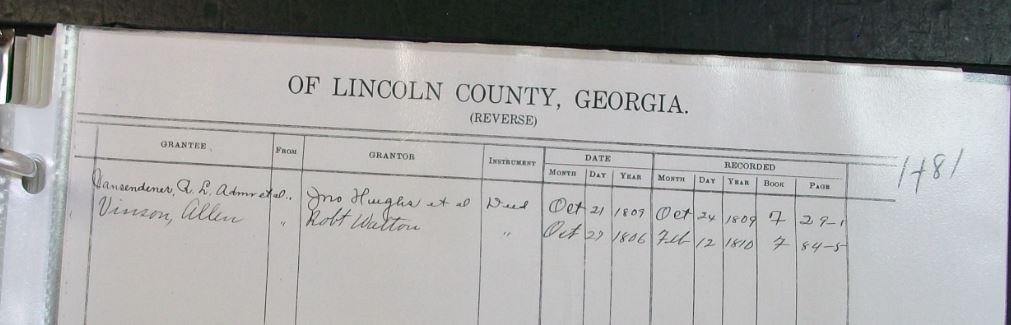 OF LINCOLN COUNTY, GEORGIA.
(REVERSE)
GRANTEE FROM GRANTOR INSTRUMENT DATE RECORDED
MONTH DAY YEAR MONTH DAY YEAR BOOK PAGE
1481
Vansendener, A. L. Admr et al. " Jno Hughs et al Deed Oct 21 1809 Oct 24 1809 7 29-1
Vinson, Allen " Robt Walton " Oct 27 1806 Feb 12 1810 7 84-5